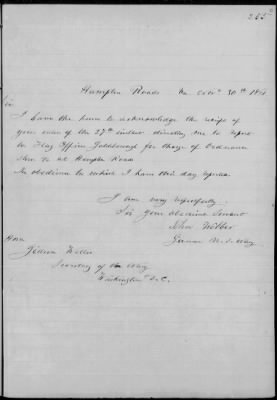 255
Hampton Roads Va Octr 30th 1861
Sir
I have the honor to acknowledge the receipt of
your order of the 27th instant directing me to report
to Flag Officer Goldsborough for charge of Ordnance
Stores &c at Hampton Roads
In obedience to which I have this day reported
I am very respectfully
Sir Your obedient Servant
John Webber
Gunner U.S. Navy
Hon
Gideon Welles
Secretary of the Navy
Washington D.C.